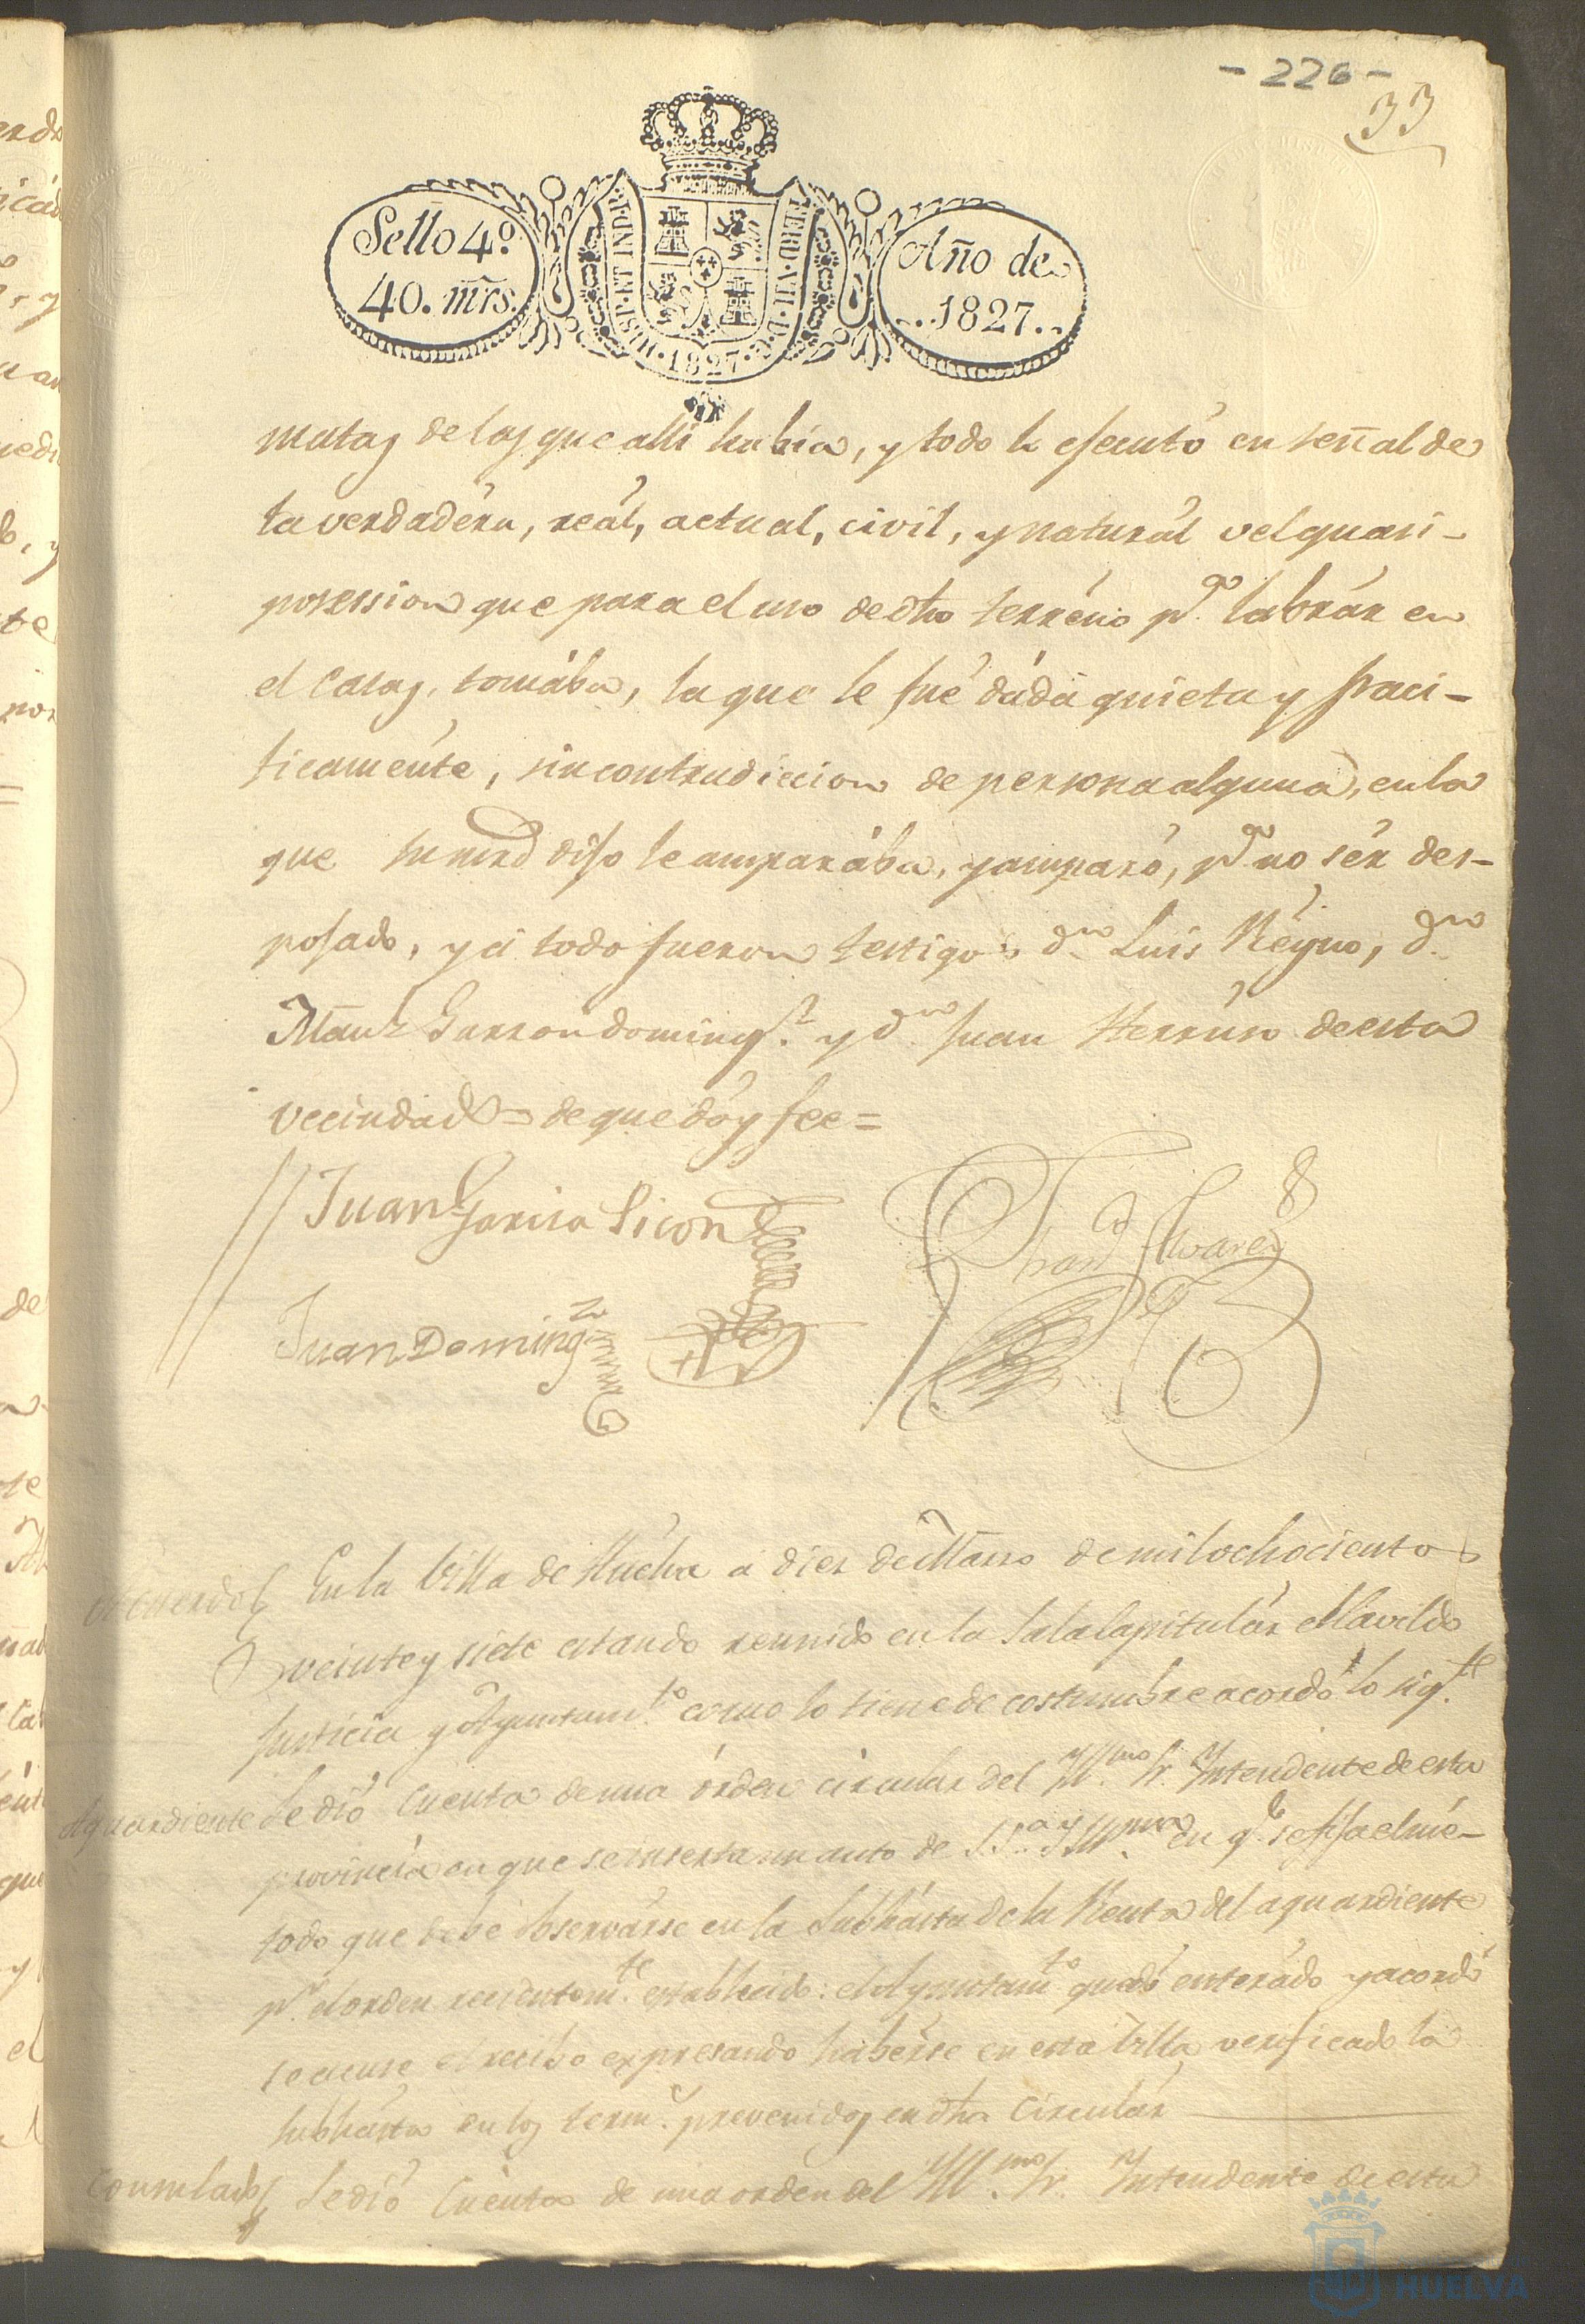 - 226 -
33
Sello 4º
40. mrs.
HISP. ET IND. R.
FERD. VII. D. G.
1827
Año de
1827.
matas de las que alli habia, y todo lo ejecutó en señal de
la verdadéra, reál, actual, civil, y naturál vel quasi-
posession que para el uso de dho terréno pª labrár en
el casas, tomába, la que le fué dáda quieta y paci-
ficaménte, sin contradiccion de persona alguna, en la
que su mrd dijo le amparába, y amparó, pª no sér des-
pojado, y á todo fueron testigos dn Luis Réyno, dn
Manl Garzon Doming.z y dn Juan Herréro de esta
vecindad = de que dóy fee =
Juan Garcia Picon
Alvarez
Juan Doming.z
Acuerdo En la Villa de Huélva á diez de Marzo de mil ochocientos
veinte y siete estando reunido en la Sala Capitulár el Cavildo
Justicia y Ayuntam.to como lo tiene de costumbre acordó lo sig.te
Aguardiente Se dió cuenta de una órden circular del Ill.mo Sr. Intendente de esta
provincia en que se inserta un auto de S.S.a Ill.ma en q.e se fija el mé-
todo que debe observárse en la Subhásta de la Renta del aguardiente
pr. el orden recientem.te establecido: el Ayuntam.to quedó enterádo y acordó
se acuse el recibo expresando habérse en esta Villa verificado la
subhásta en los term.s prevenidos en dha Circulár
Consulado Se dió Cuénta de una orden del Ill.mo Sr. Intendente de esta
HUELVA